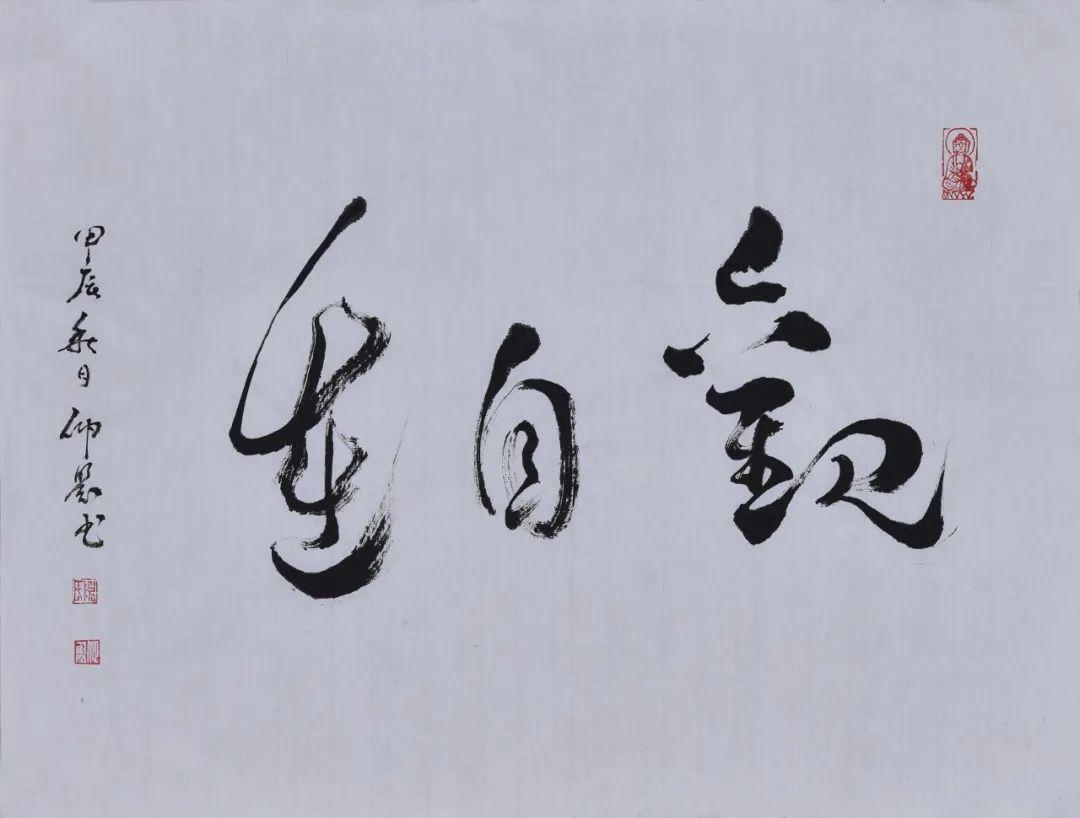 觀自在
甲辰秋日仰器书